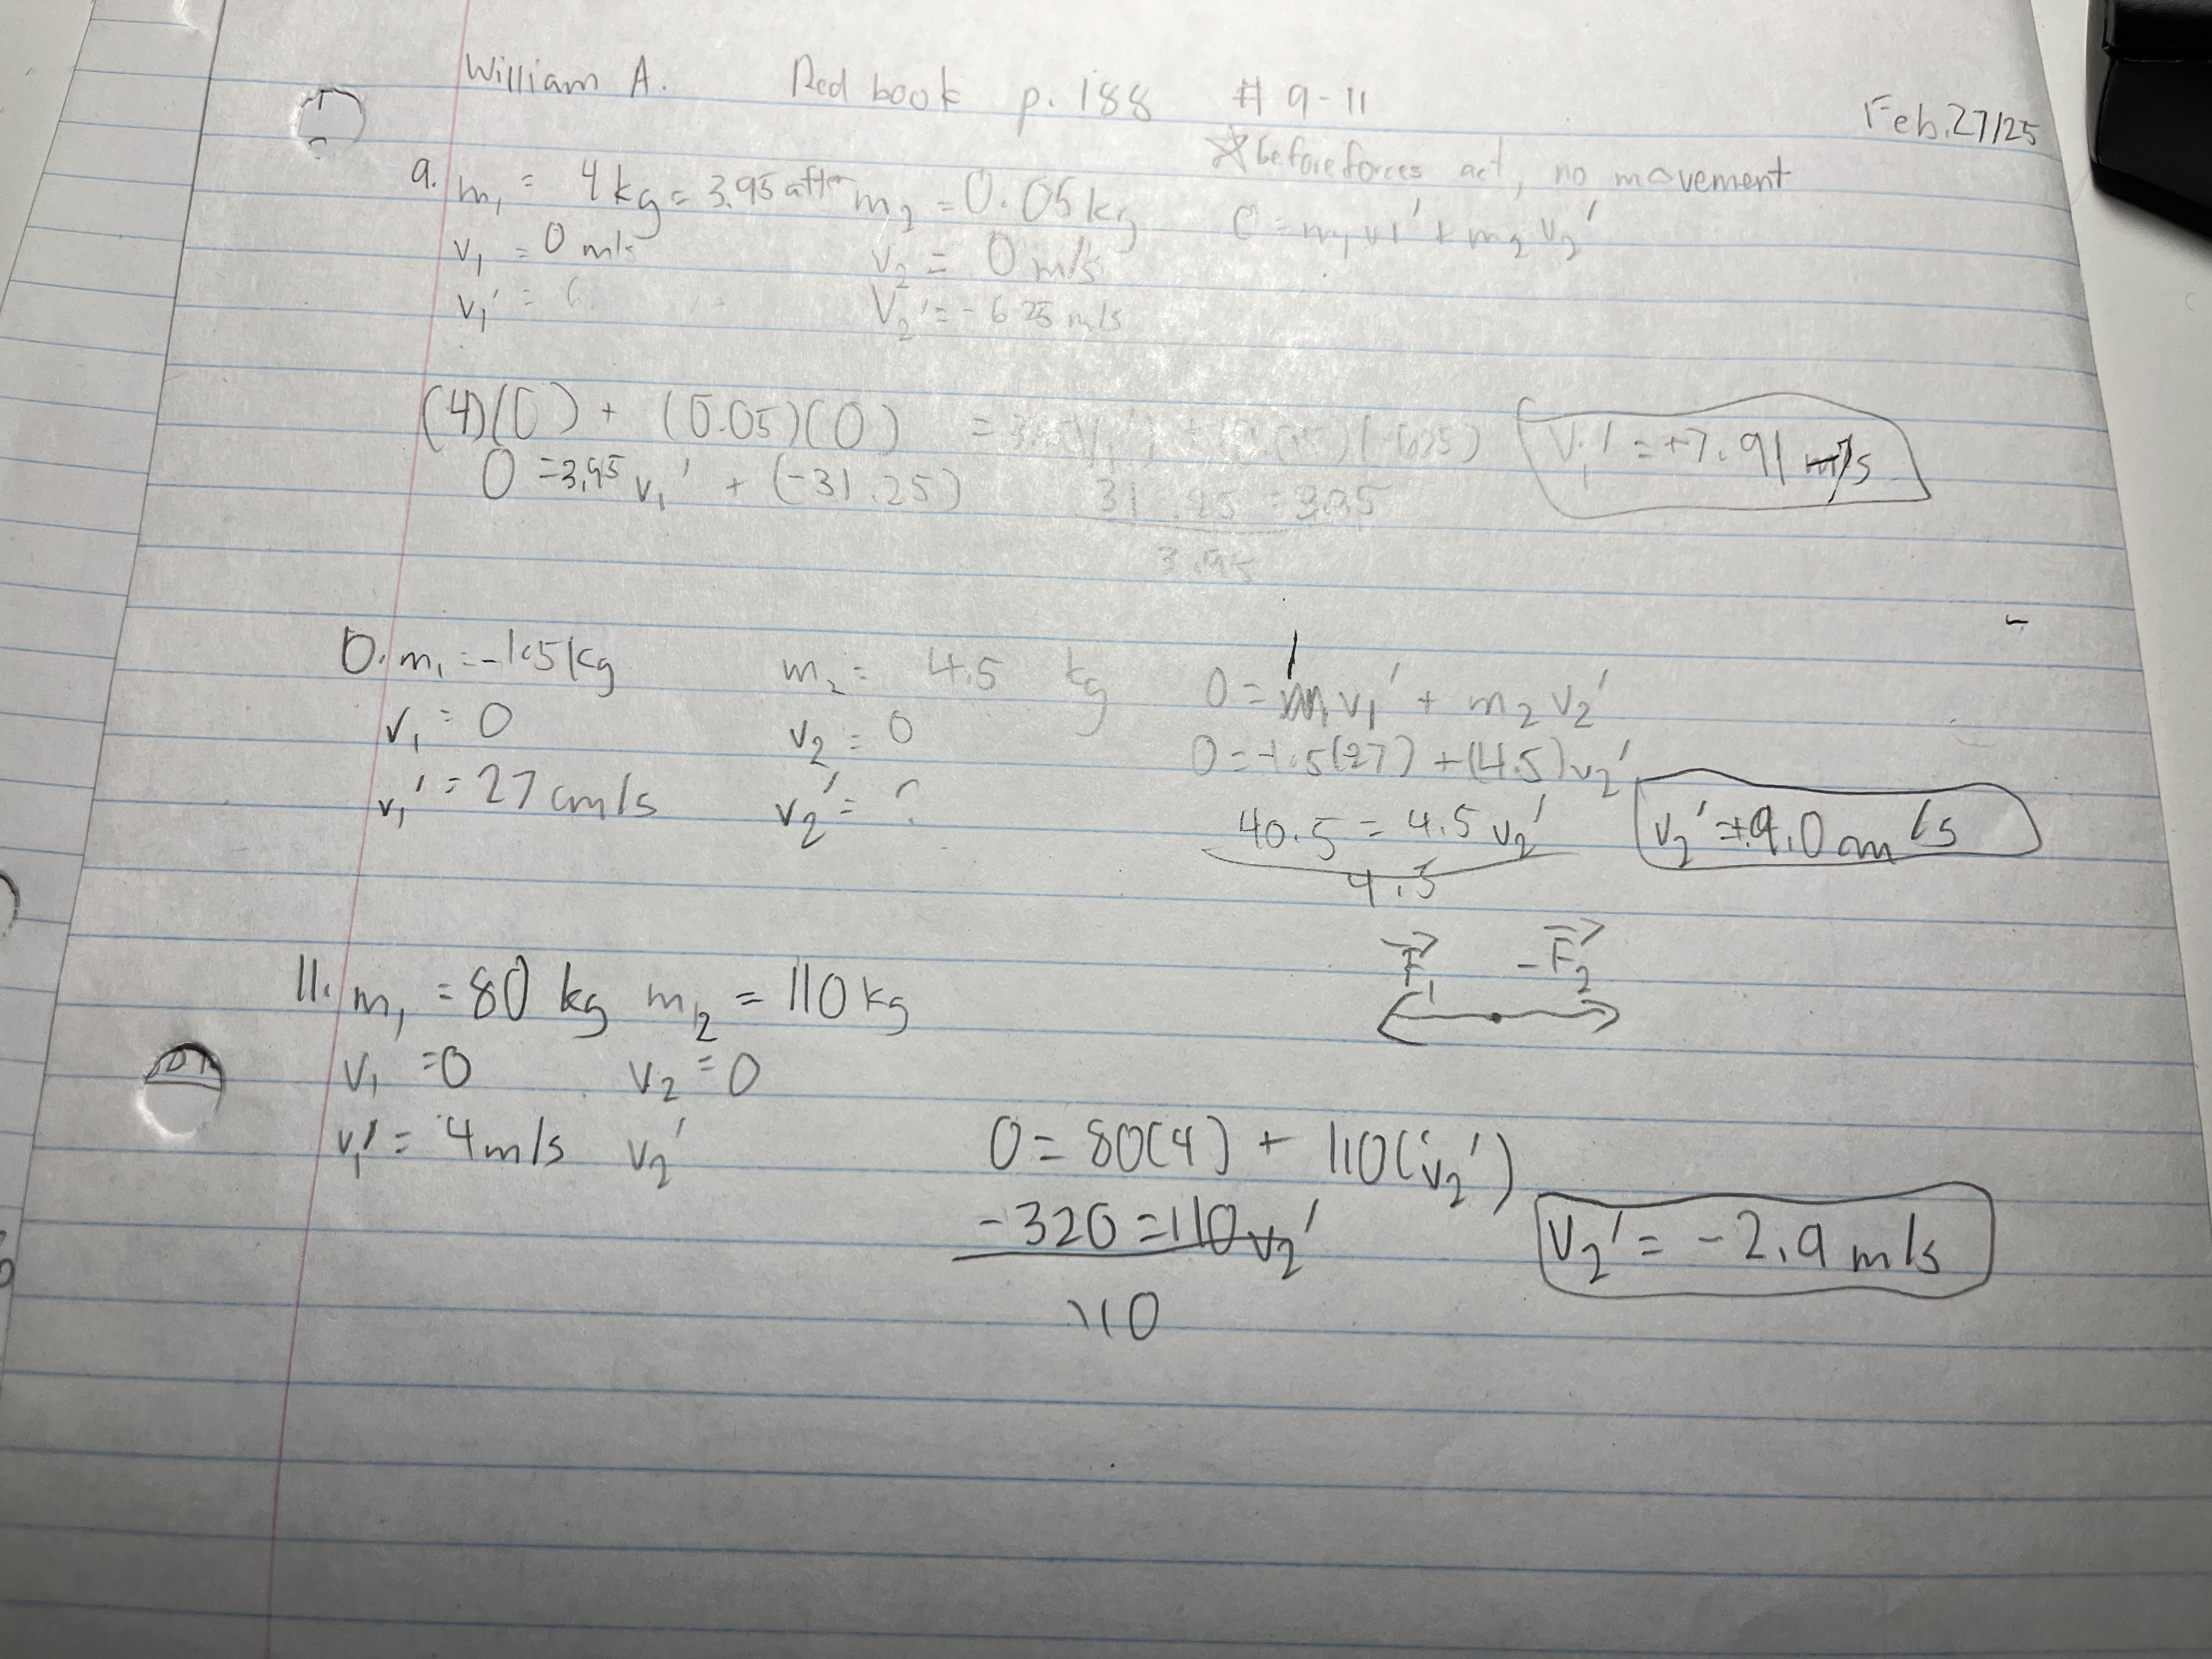 William A. Red book p. 188 # 9-11
Feb. 27/25
☆ before forces act, no movement
9. m₁ = 4 kg = 3.95 after m₂ = 0.05 kg 0 = m₁v₁' + m₂v₂'
v₁ = 0 m/s v₂ = 0 m/s
v₁' = v₂' = -625 m/s
(4)(0) + (0.05)(0) = 3.95(v₁') + (0.05)(-625) v₁' = +7.91 m/s
0 = 3.95 v₁' + (-31.25) 31.25 = 3.95
3.95
0. m₁ = -1.5 kg m₂ = 4.5 kg 0 = m₁v₁' + m₂v₂'
v₁ = 0 v₂ = 0 0 = -1.5(27) + (4.5)v₂'
v₁' = 27 cm/s v₂' = ? 40.5 = 4.5 v₂' v₂' = +9.0 cm/s
4.5
F₁ -F₂
11. m₁ = 80 kg m₂ = 110 kg
v₁ = 0 v₂ = 0
v₁' = 4 m/s v₂' 0 = 80(4) + 110(v₂')
-320 = 110 v₂' v₂' = -2.9 m/s
110